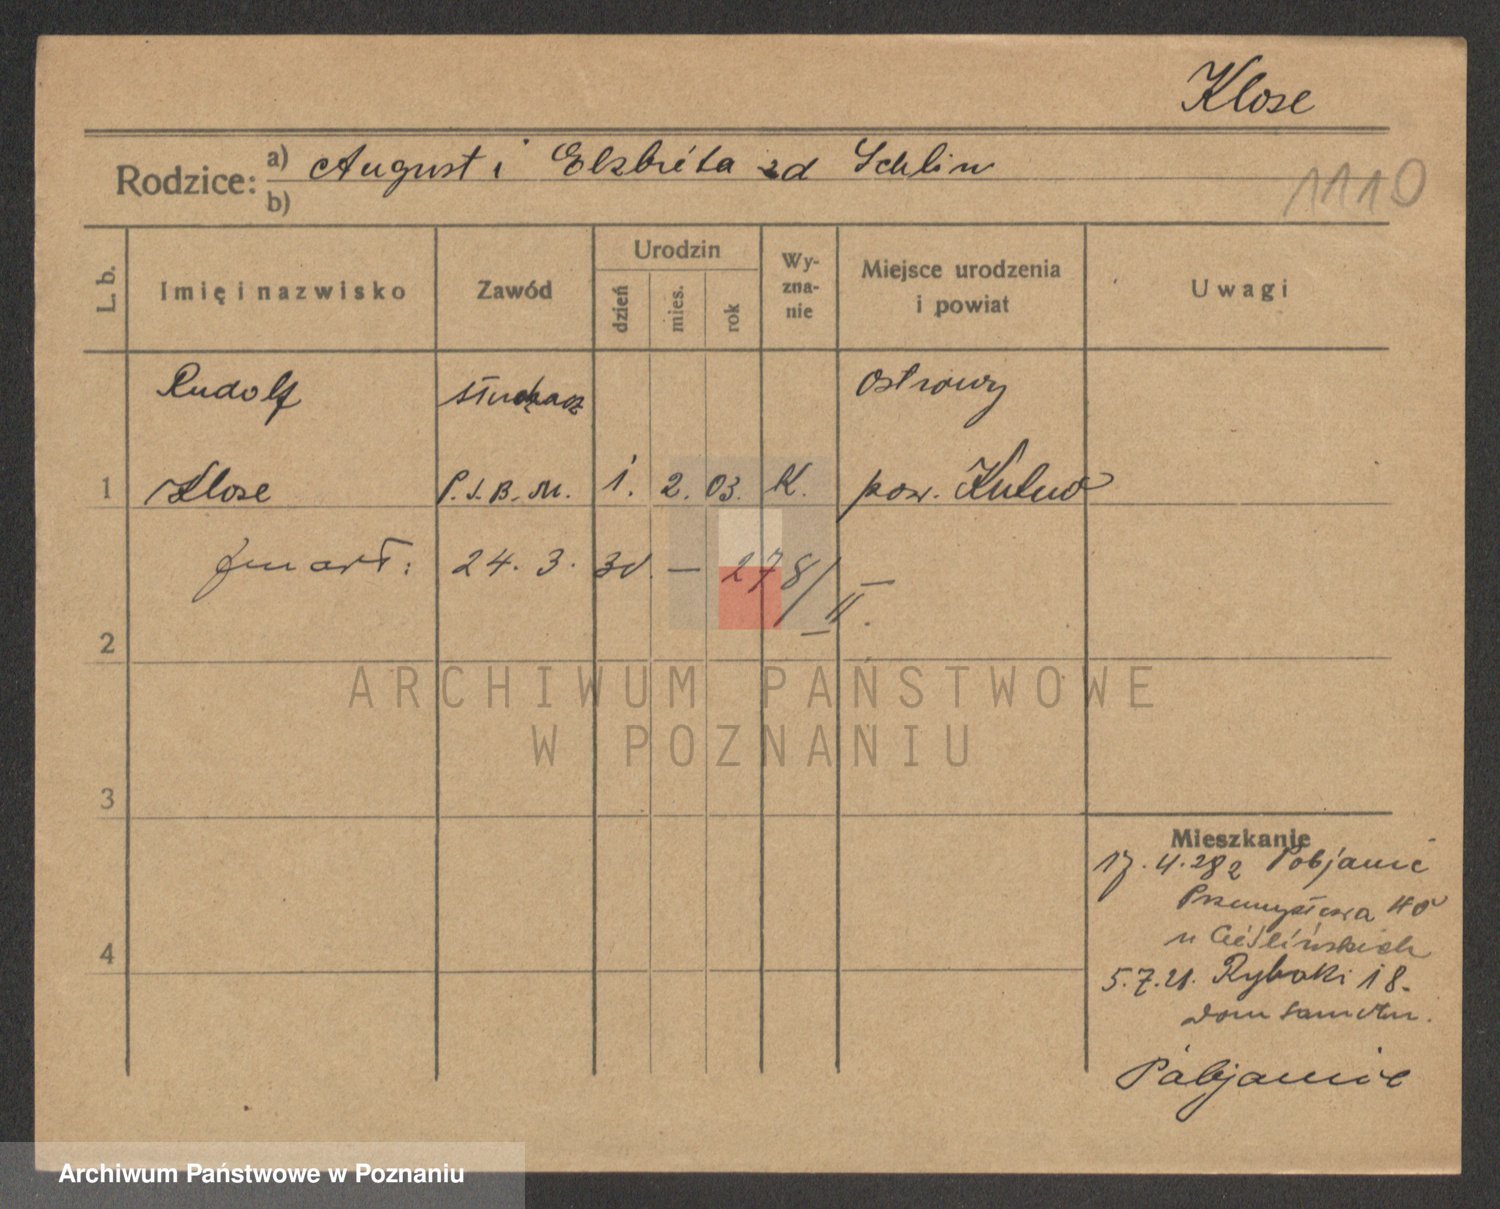 Klose
Rodzice: a) August i Elżbiéta zd Schlin
b)
1110
L. b.
Imię i nazwisko
Zawód
Urodzin
dzień
mies.
rok
Wy-
zna-
nie
Miejsce urodzenia
i powiat
Uwagi
Rudolf słuchacz Ostrowy
1 Klose P.S.B.M. 1. 2. 03. K. pow. Kutno
zmarł: 24. 3. 30. — 278/II.
2
ARCHIWUM PAŃSTWOWE
W POZNANIU
3
Mieszkanie
17.4.28 z Pabjanic
Przemysłowa 40
u Cieślińskich
4
5.7.28. Rybaki 18.
dom samotn.
Pabjanic
Archiwum Państwowe w Poznaniu